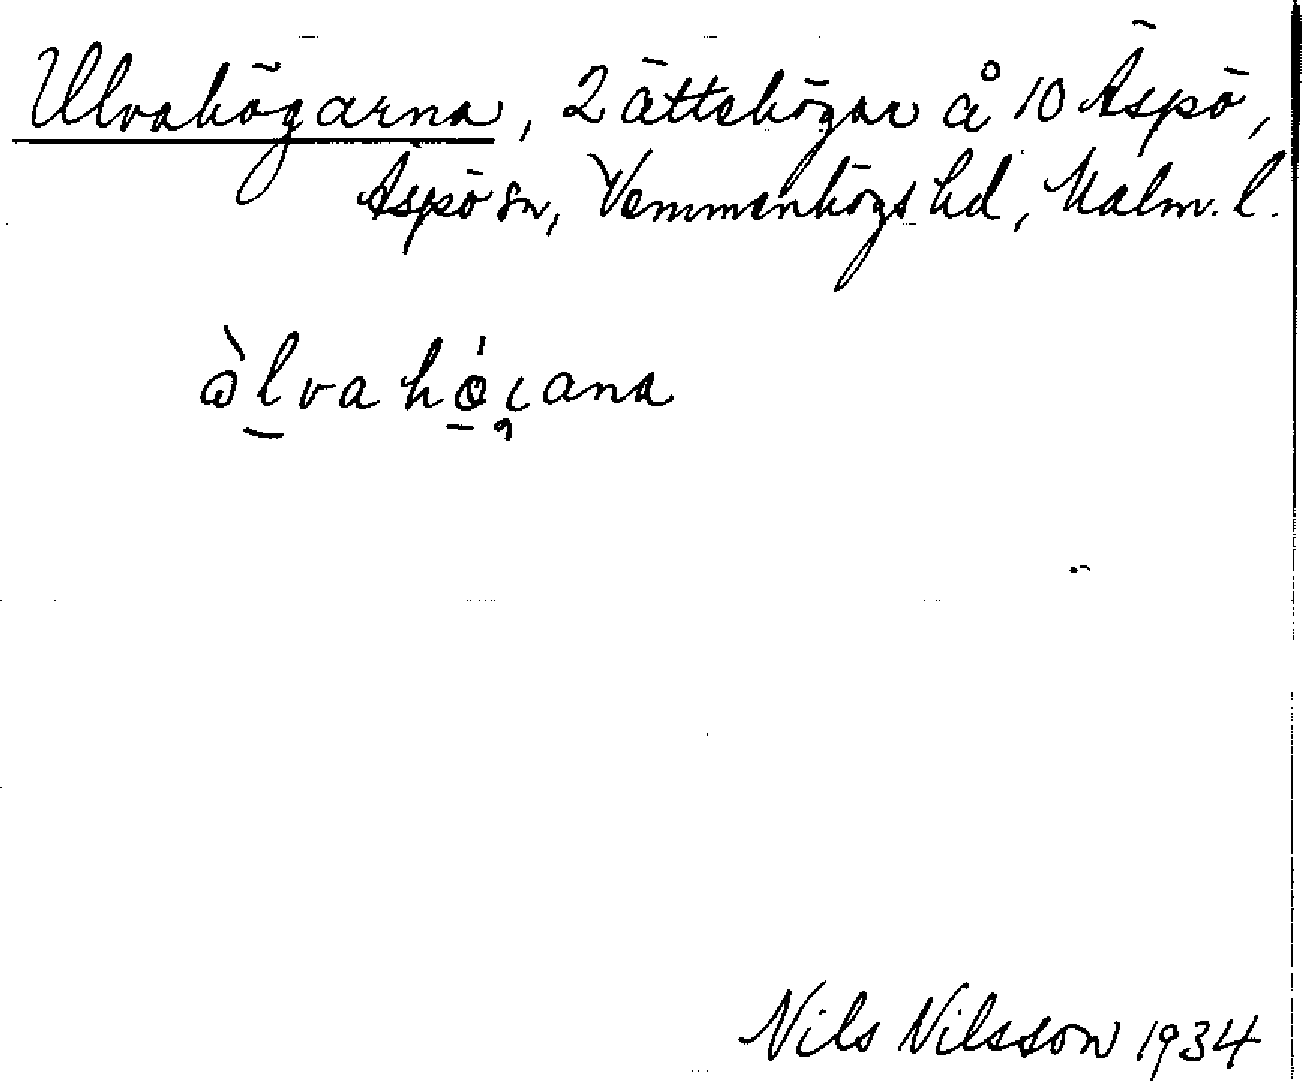 Ulvahögarna, 2 ättehögar å 10 Äspö,
Äspö sn, Vemmenhögs hd, Malm. l.
àlvahǿꞔana
Nils Nilsson 1934